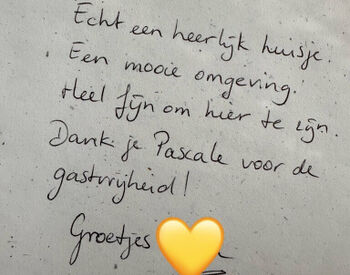 Echt een heerlijk huisje.
Een mooie omgeving.
Heel fijn om hier te zijn.
Dank je Pascale voor de
gastvrijheid!
Groetjes